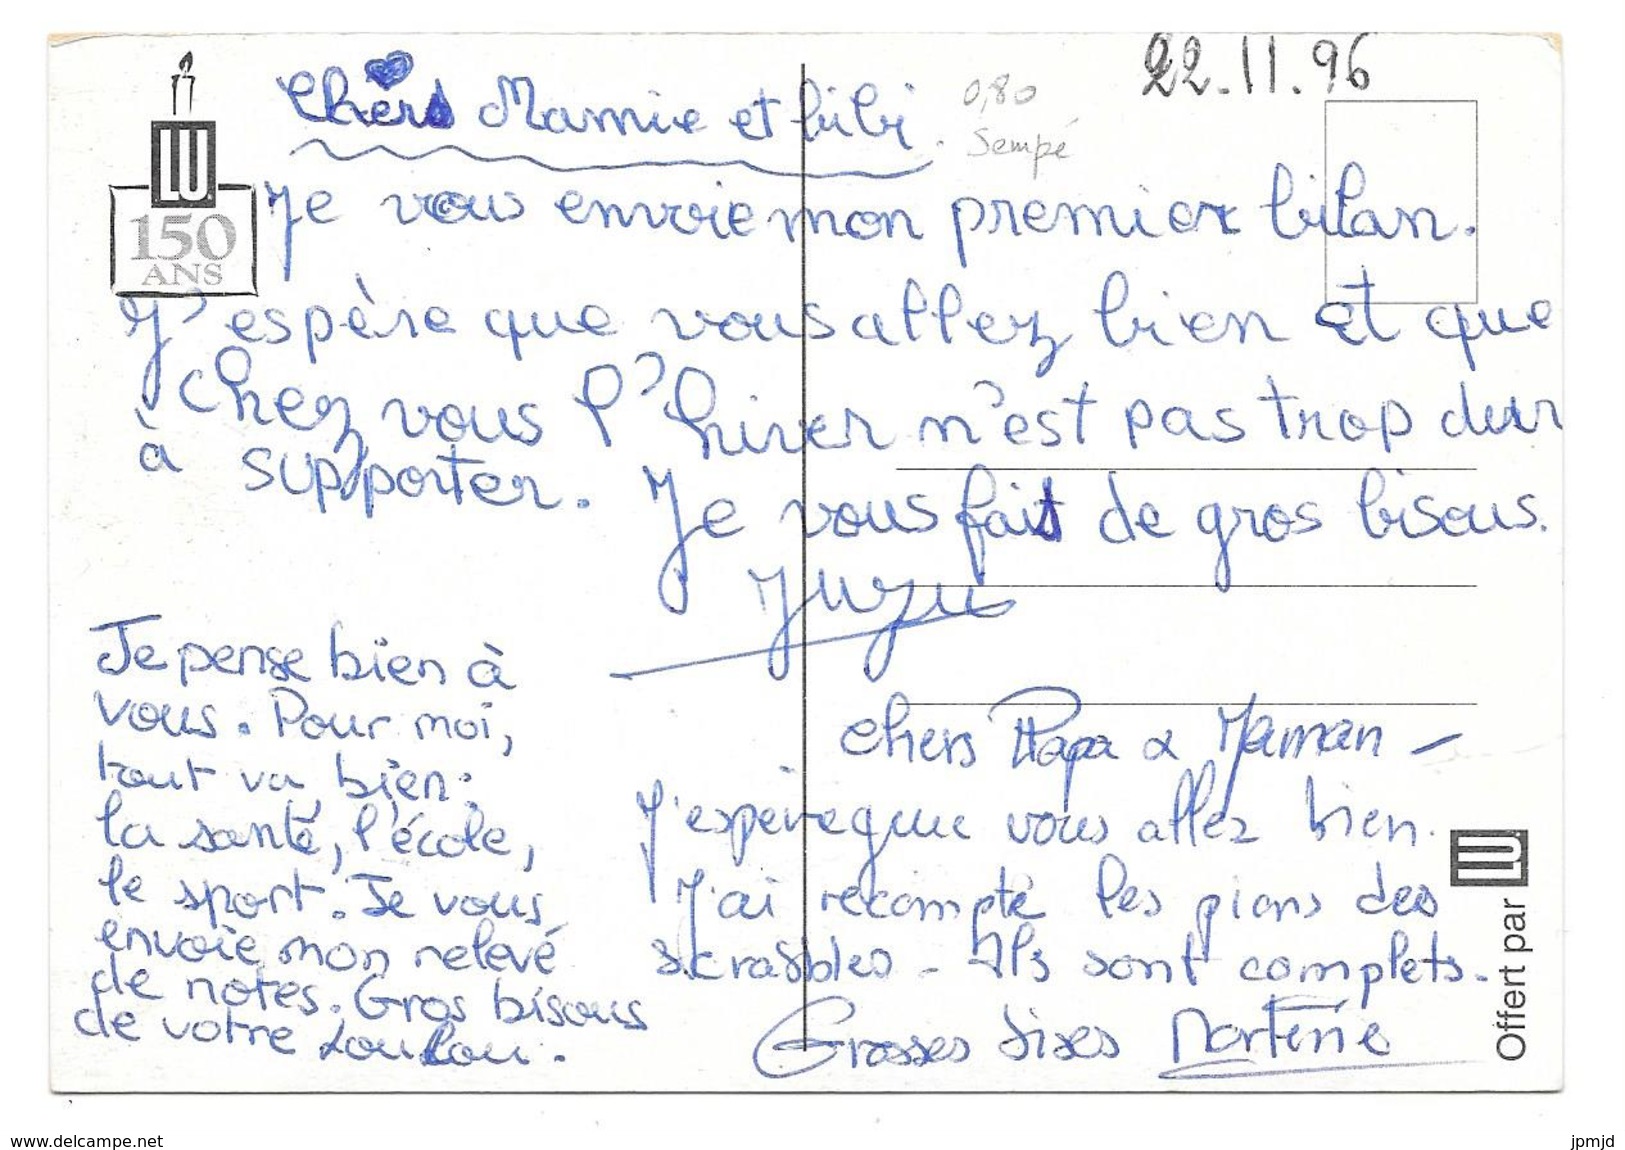 22.11.96
0,80
Sempé
LU
150
ANS
Chers Mamie et bibi.
Je vous envoie mon premier bilan.
J'espère que vous allez bien et que
chez vous l'hiver n'est pas trop dur
à supporter. Je vous fait de gros bisous.
Juju
Je pense bien à
vous. Pour moi,
tout va bien:
la santé, l'école,
le sport. Je vous
envoie mon relevé
de notes. Gros bisous
de votre Loulou.
chers Papa & Maman -
J'espère que vous allez bien.
J'ai recompté les pions des
scrabbles - Ils sont complets.
Grosses bises Martine
Offert par LU
www.delcampe.net
jpmjd